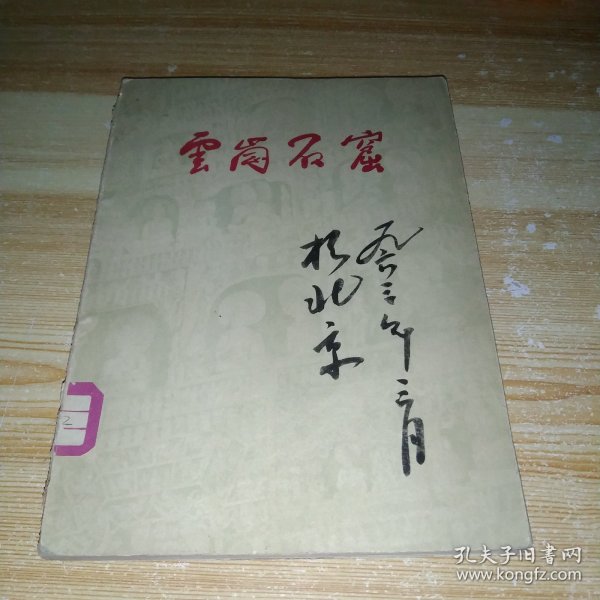 雲崗石窟
一九六三年三月
於北京
2
孔夫子旧書网
www.kongfz.com